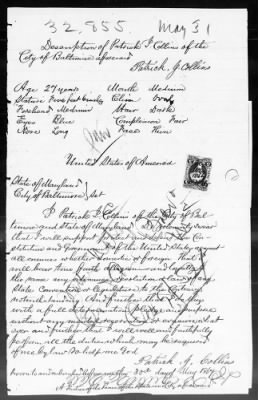 32,855 May 31
Description of Patrick J Collins of the
City of Baltimore aforesaid
Patrick. J. Collins
Age 27 years Mouth Medium
Stature Five feet 6 inches Chin Oval
Forehead Medium Hair Dark
Eyes Blue Complexion Fair
Nose Long Face Thin
United States of America
State of Maryland
City of Baltimore Sct
I Patrick J Collins of the City of Bal-
timore and State of Maryland Do Solemnly swear
that I will support, protect and defend the Con-
stitution and Government of the United States against
all enemies whether domestic or foreign that I
will bear true faith allegiance and loyalty to
the same any ordinance resolution or law of any
State Convention or Legislature to the Contrary
notwithstanding. And further that I do this
with a full determination pledge and purpose
without any mental reservation or evasion what
ever and further that I will well and faithfully
perform all the duties which may be required
of me by law So help me God
Patrick J. Collins
Sworn to and subscribed before me this 30th day of May 1867